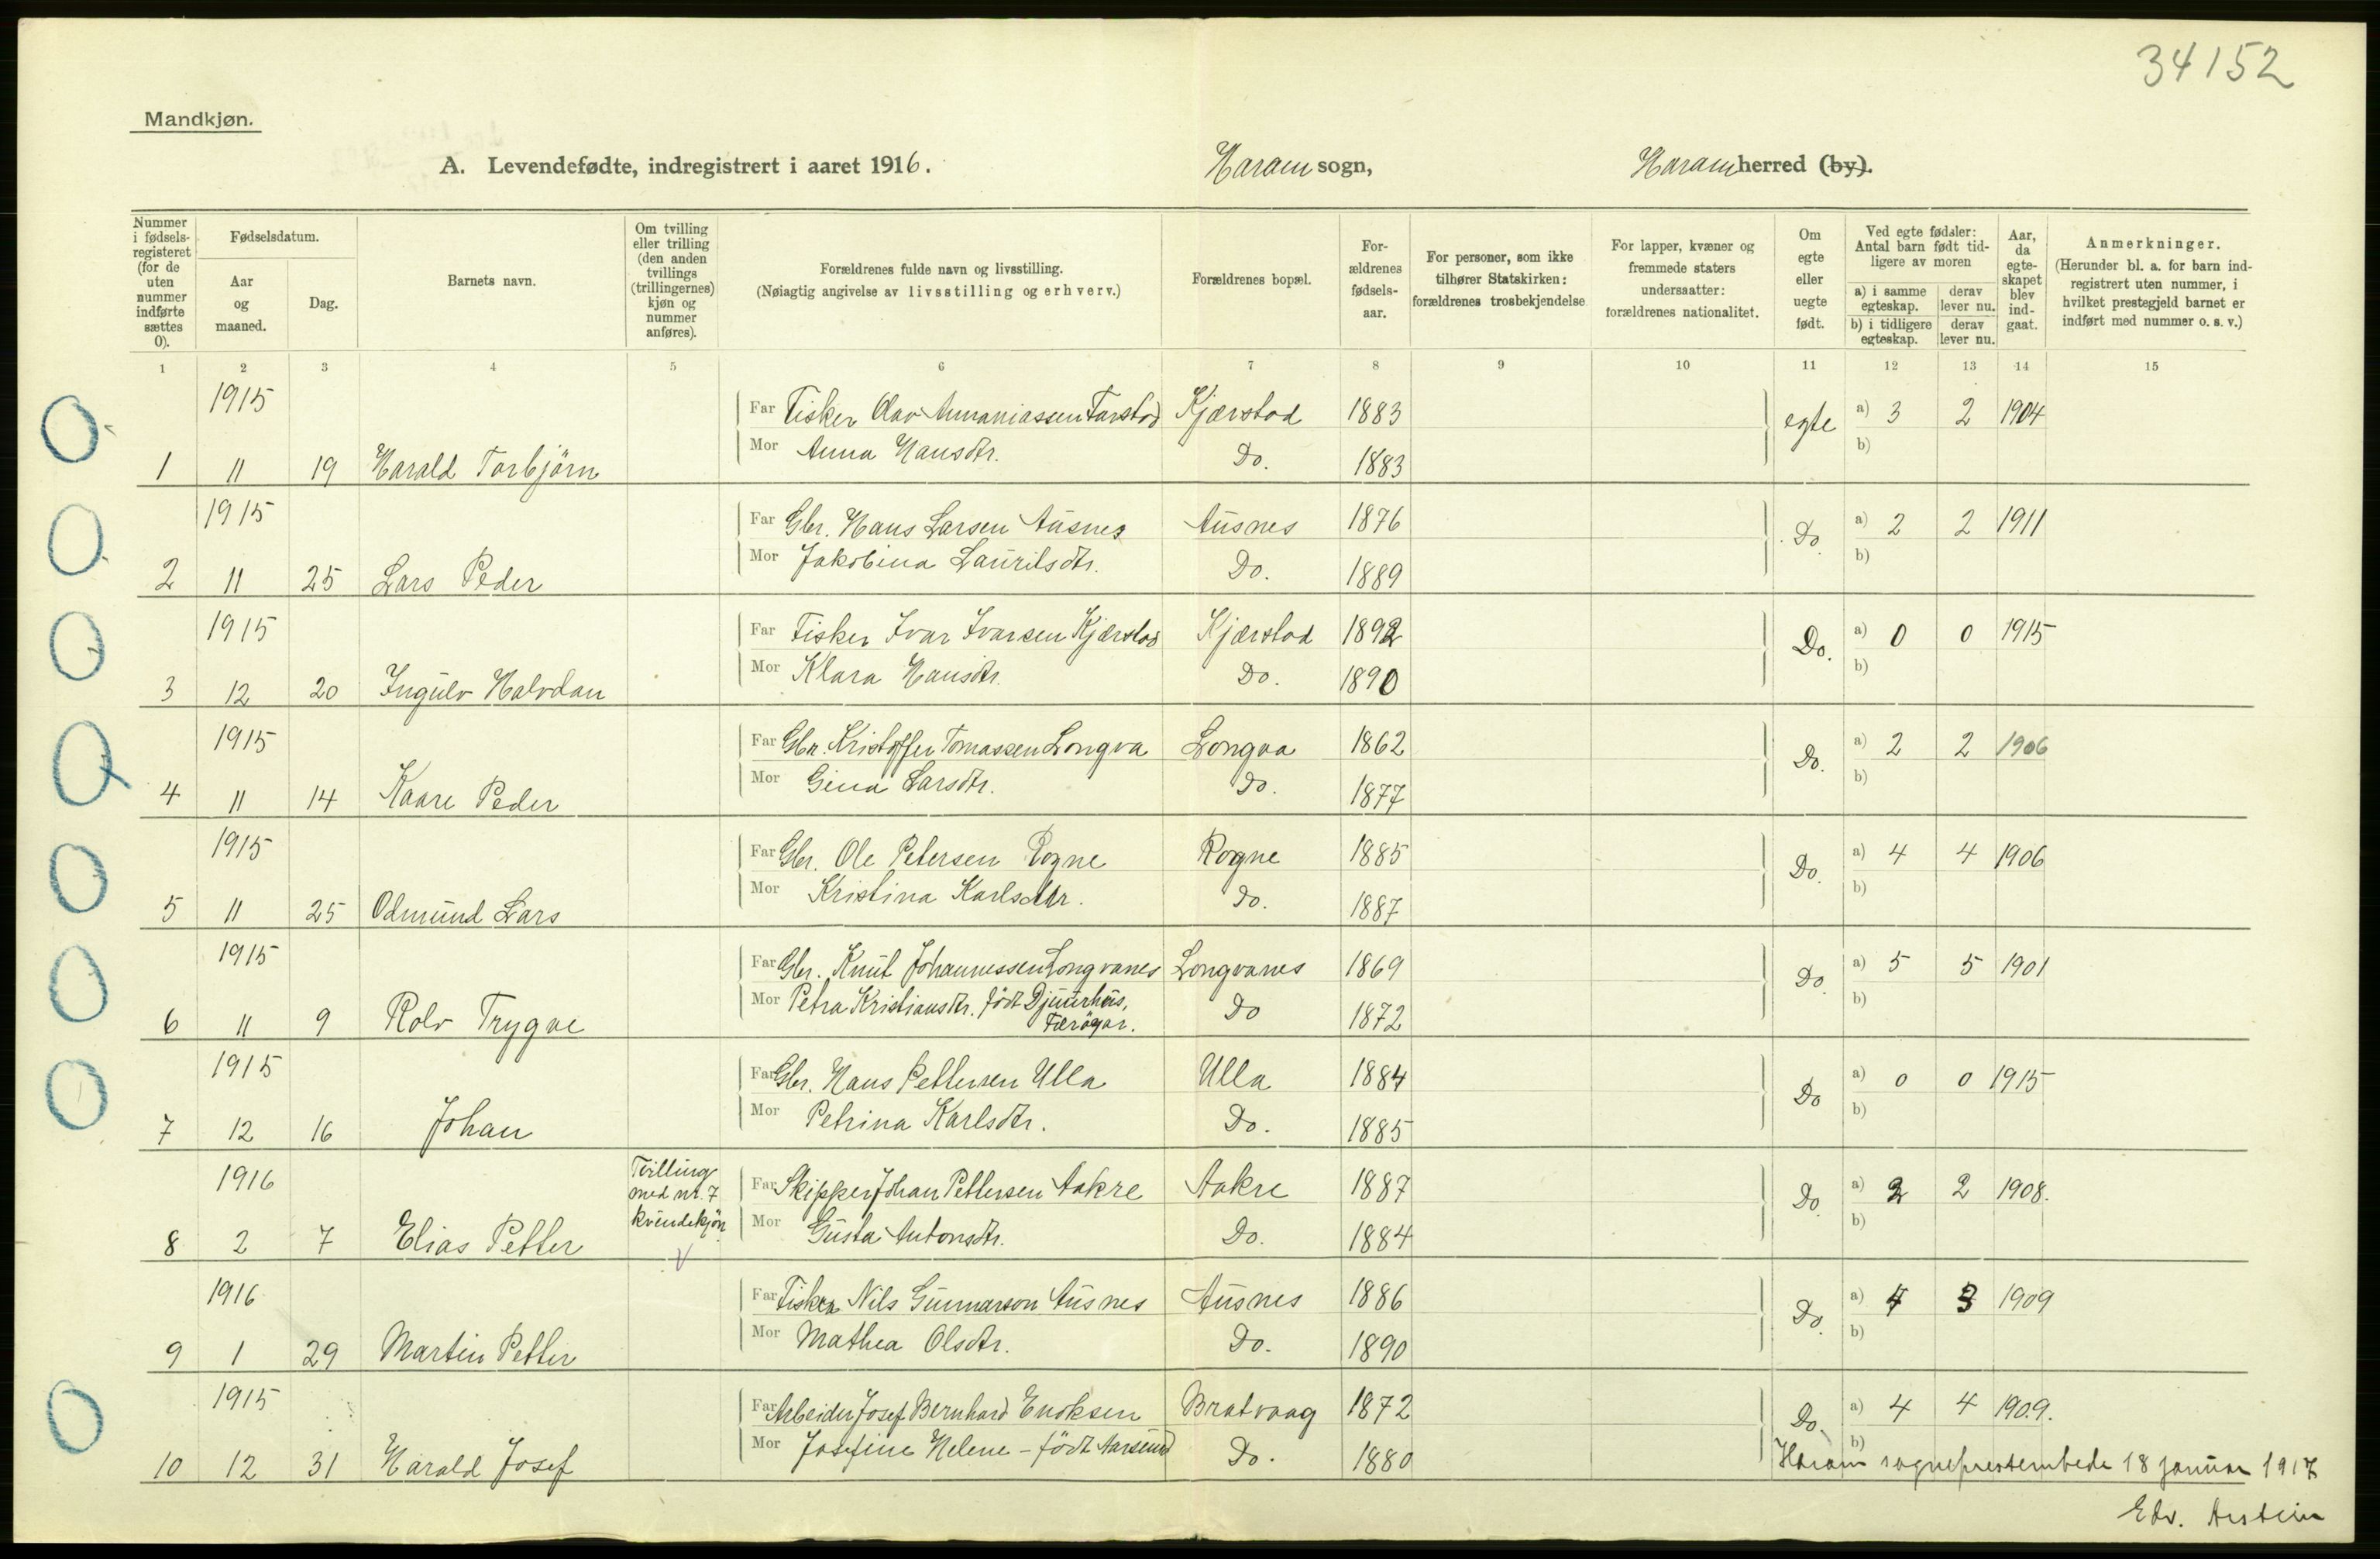 34152
Mandkjøn.
A. Levendefødte, indregistrert i aaret 1916. Haram sogn, Haram herred (by).
Nummer i fødsels-registeret (for de uten nummer indførte sættes 0).
Fødselsdatum.
Aar og maaned.
Dag.
Barnets navn.
Om tvilling eller trilling (den anden tvillings (trillingernes) kjøn og nummer anføres).
Forældrenes fulde navn og livsstilling.
(Nøiagtig angivelse av livsstilling og erhverv.)
Forældrenes bopæl.
For-ældrenes fødsels-aar.
For personer, som ikke tilhører Statskirken: forældrenes trosbekjendelse
For lapper, kvæner og fremmede staters undersaatter: forældrenes nationalitet.
Om egte eller uegte født.
Ved egte fødsler: Antal barn født tid-ligere av moren
a) i samme egteskap. derav lever nu.
b) i tidligere egteskap. derav lever nu.
Aar, da egte-skapet blev ind-gaat.
Anmerkninger.
(Herunder bl. a. for barn ind-registrert uten nummer, i hvilket prestegjeld barnet er indført med nummer o. s. v.)
1 2 3 4 5 6 7 8 9 10 11 12 13 14 15
1915 Far Fisker Olav Ananiassen Farstad Kjærstad 1883 egte a) 3 2 1904
1 11 19 Harald Torbjörn Mor Anna Hansdtr. Do. 1883 b)
1915 Far Gbr. Hans Larsen Ausnes Ausnes 1876 Do a) 2 2 1911
2 11 25 Lars Peder Mor Jakobina Lauritsdtr. Do. 1889 b)
1915 Far Fisker Ivar Ivarsen Kjærstad Kjærstad 1892 Do. a) 0 0 1915
3 12 20 Ingulv Halvdan Mor Klara Hansdtr. Do. 1890 b)
1915 Far Gbr. Kristoffer Tomassen Longva Longva 1862 Do. a) 2 2 1906
4 11 14 Kaare Peder Mor Gina Larsdtr. Do. 1877 b)
1915 Far Gbr. Ole Petersen Rogne Rogne 1885 Do. a) 4 4 1906
5 11 25 Odmund Lars Mor Kristina Karlsdtr. Do. 1887 b)
1915 Far Gbr. Knut Johannessen Longvanes Longvanes 1869 Do a) 5 5 1901
6 11 9 Rolv Trygve Mor Petra Kristiansdtr. född Djuurhus, Do 1872 b)
Færöyar.
1915 Far Gbr. Hans Pettersen Ulla Ulla 1884 Do a) 0 0 1915
7 12 16 Johan Mor Petrina Karlsdtr. Do. 1885 b)
1916 Tvilling med nr. 7 kvindekjön Far Skipper Johan Pettersen Aakre Aakre 1887 Do. a) 2 2 1908.
8 2 7 Elias Petter Mor Gusta Antonsdtr. Do. 1884 b)
1916 Far Fisker Nils Gunnarson Ausnes Ausnes 1886 Do. a) 4 3 1909
9 1 29 Martin Petter Mor Mathea Olsdtr. Do. 1890 b)
1915 Far Arbeider Josef Bernhard Enoksen Bratvaag 1872 Do. a) 4 4 1909.
10 12 31 Harald Josef Mor Josefine Helene - född Aarsund Do. 1880 b)
Haram sogneprestembede 18 januar 1917
Edv.